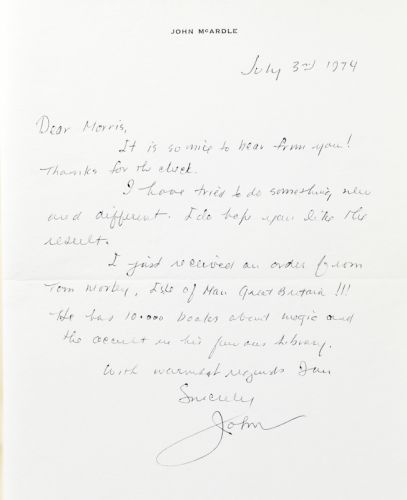 JOHN McARDLE
July 3rd 1974
Dear Morris,
It is so nice to hear from you!
Thanks for the check.
I have tried to do something new
and different. I do hope you like the
result.
I just received an order from
Tom Worley, Isle of Man Great Britain !!!
He has 10.000 books about magic and
the occult in his famous library.
With warmest regards I am
Sincerely
John